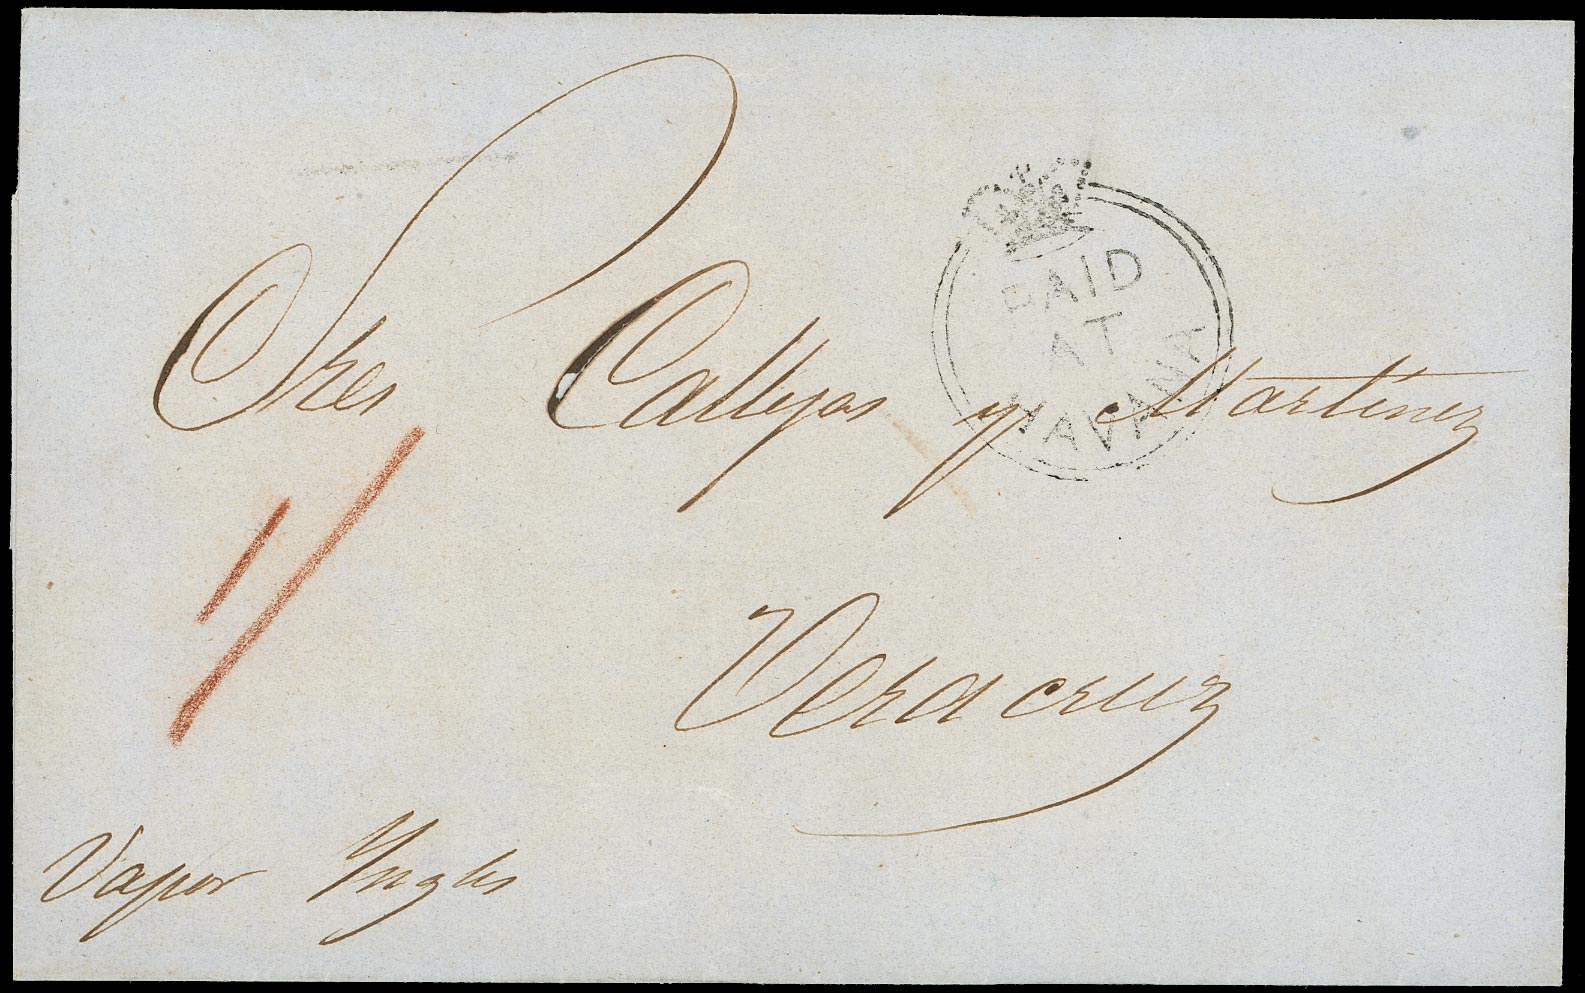 PAID
AT
HAVANA
Sres Callejas y Martinez
1/
Veracruz
Vapor Yngles